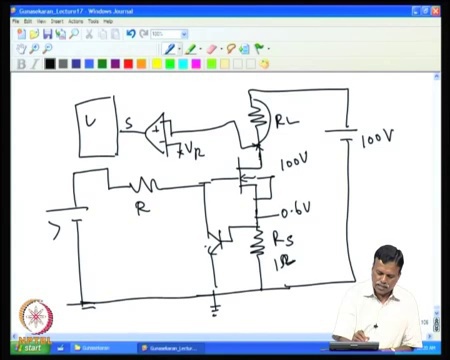 Gunasekaran_Lecture17 - Windows Journal
File Edit View Insert Actions Tools Help
100%
B I
S
+
VR
RL
100V
100V
R
0.6V
RS
1Ω
NPTEL
start
Gunasekaran
Gunasekaran_Lectu...